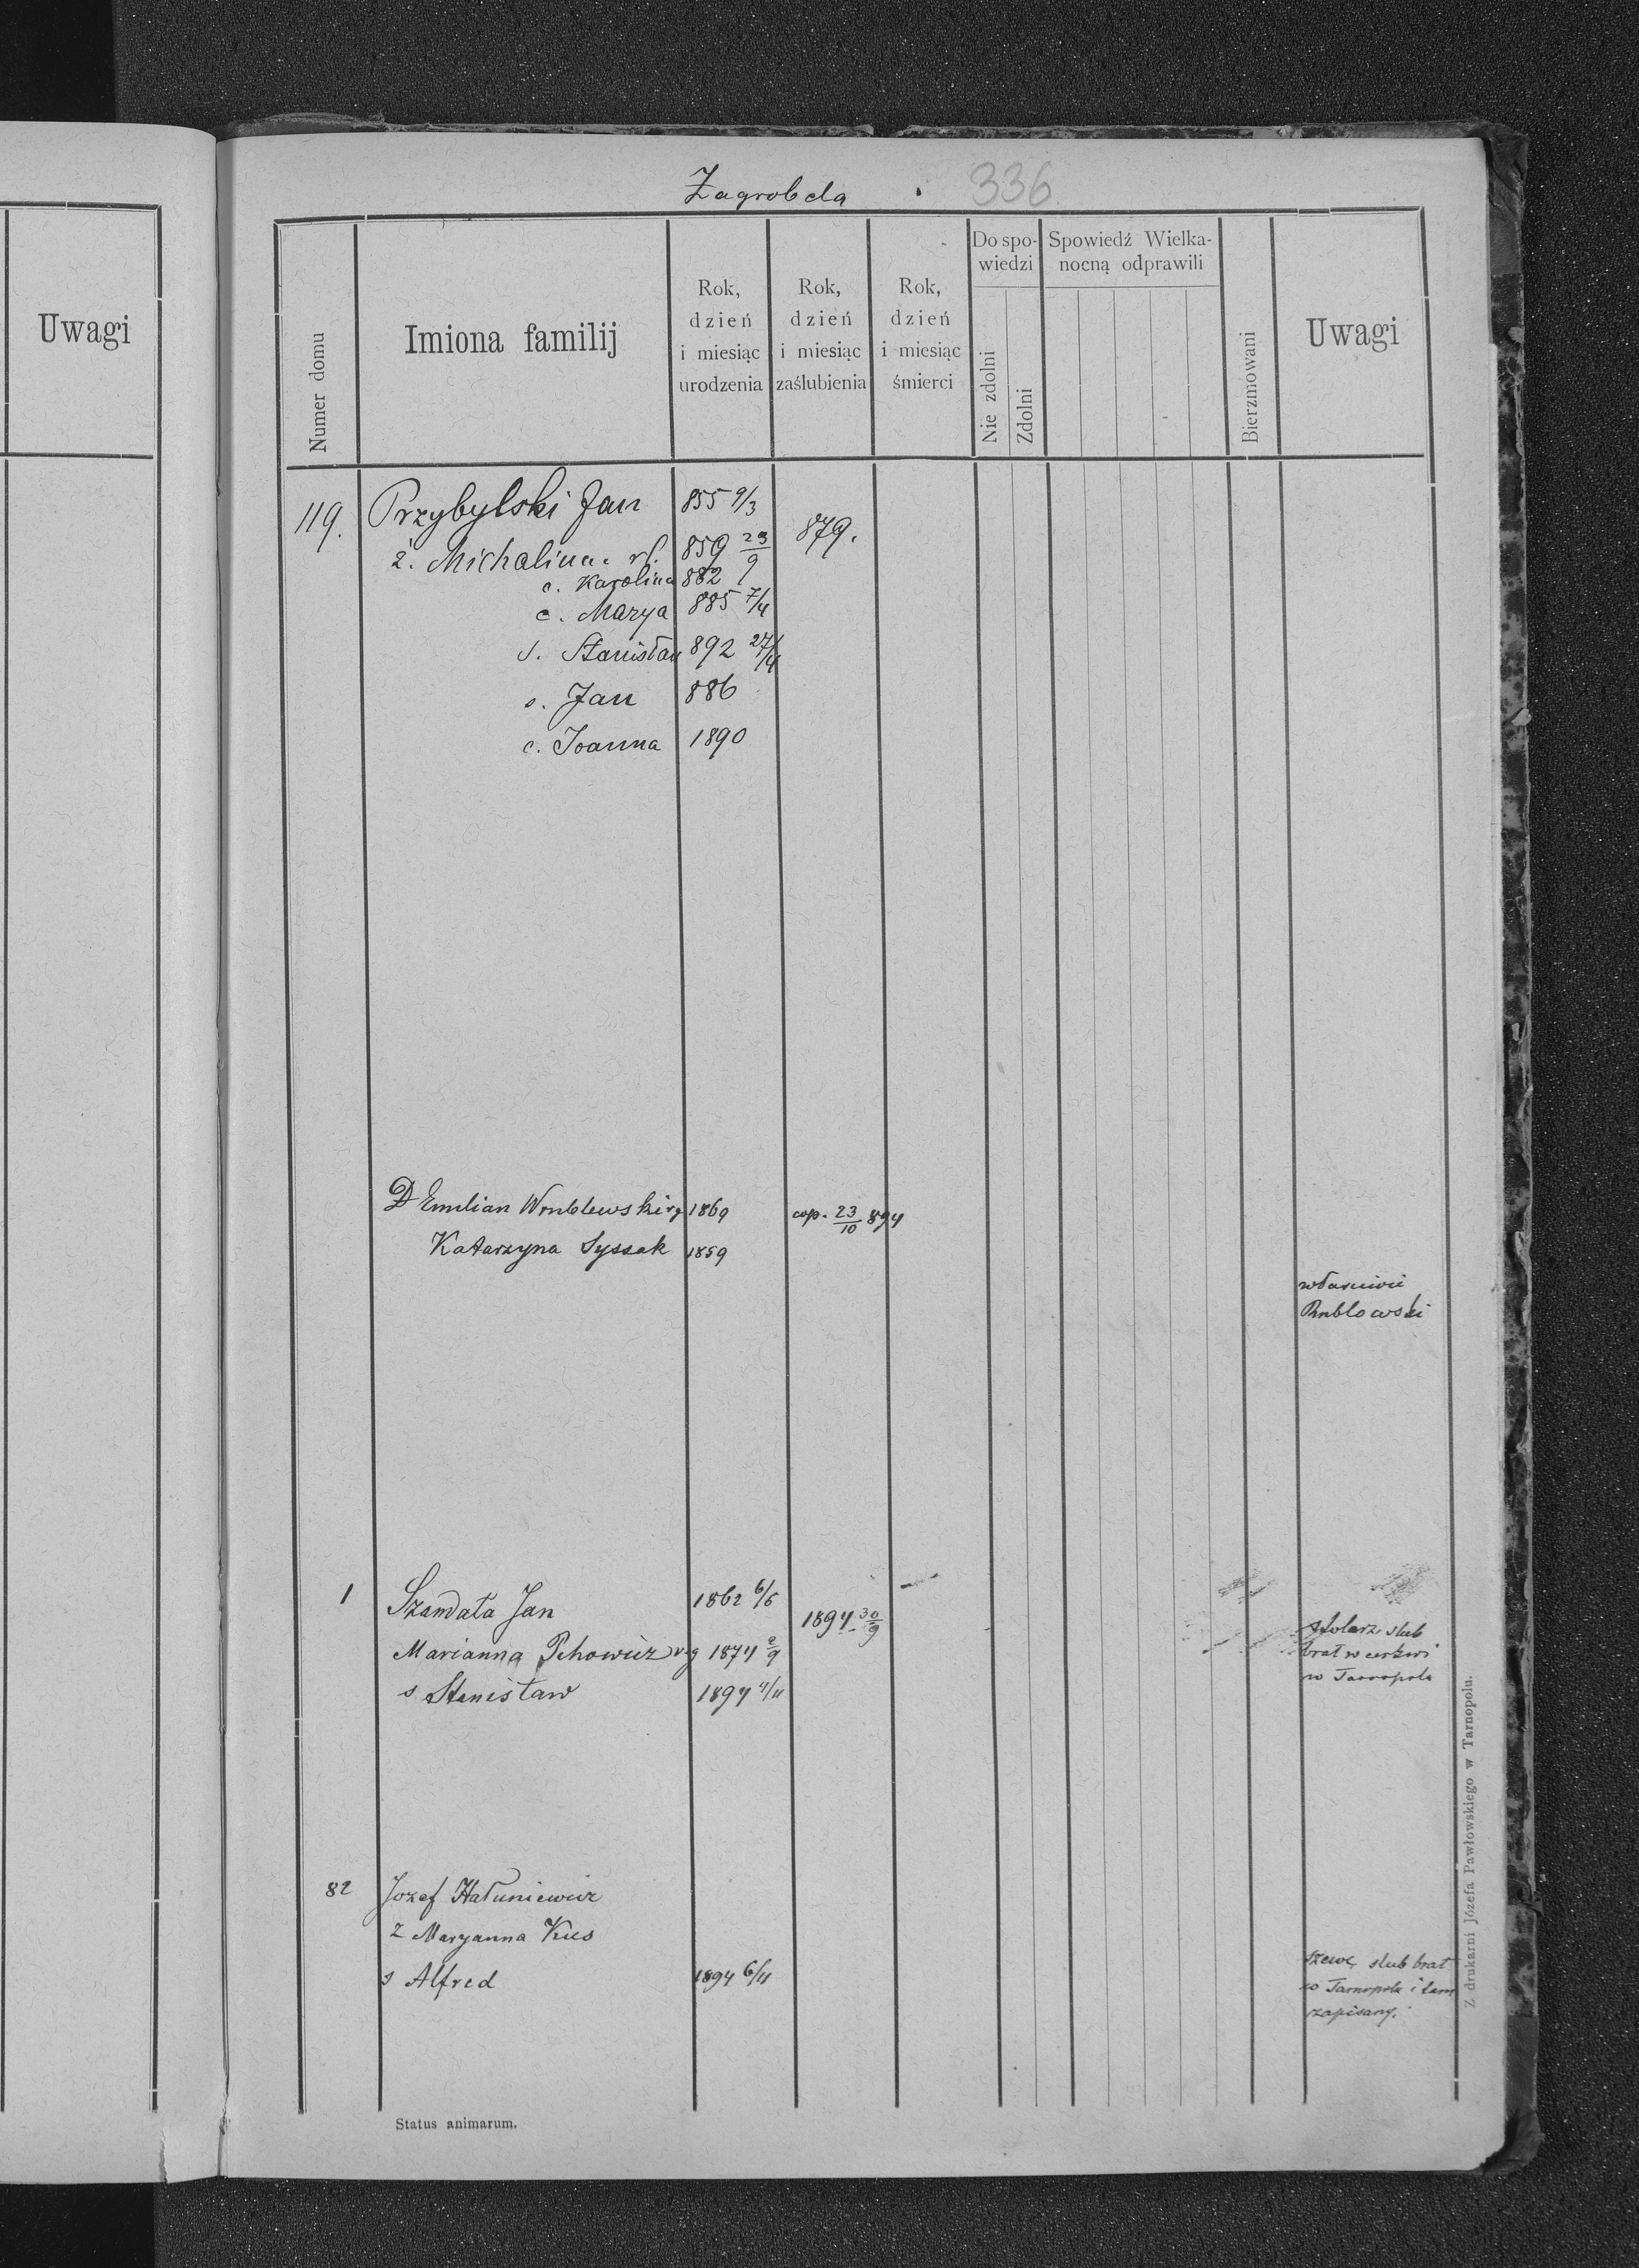 Uwagi
Zagrobela 336
Numer domu
Imiona familij
Rok, dzień i miesiąc urodzenia
Rok, dzień i miesiąc zaślubienia
Rok, dzień i miesiąc śmierci
Do spowiedzi
Nie zdolni
Zdolni
Spowiedź Wielkanocną odprawili
Bierzmowani
Uwagi
119. Przybylski Jan 855 9/3 879.
ż. Michalina 859 23/9
c. Karolina 882
c. Marya 885 7/4
s. Stanisław 892 27/4
s. Jan 886
c. Joanna 1890
Emilian Wrublewski 1869 cop. 23/10 894
Katarzyna Syssak 1859
właściwie
Rublowski
1 Szandała Jan 1862 6/6 1894 30/9
Marianna 1874 2/9
s Stanisław 1894 4/11
stolarz slub
brał w cerkwi
w Tarnopolu
82 Jozef Hałuniewicz
ż Maryanna Kus
s Alfred 1894 6/11
szewc, slub brał
w Tarnopolu i tam
zapisany.
Status animarum.
Z drukarni Józefa Pawłowskiego w Tarnopolu.